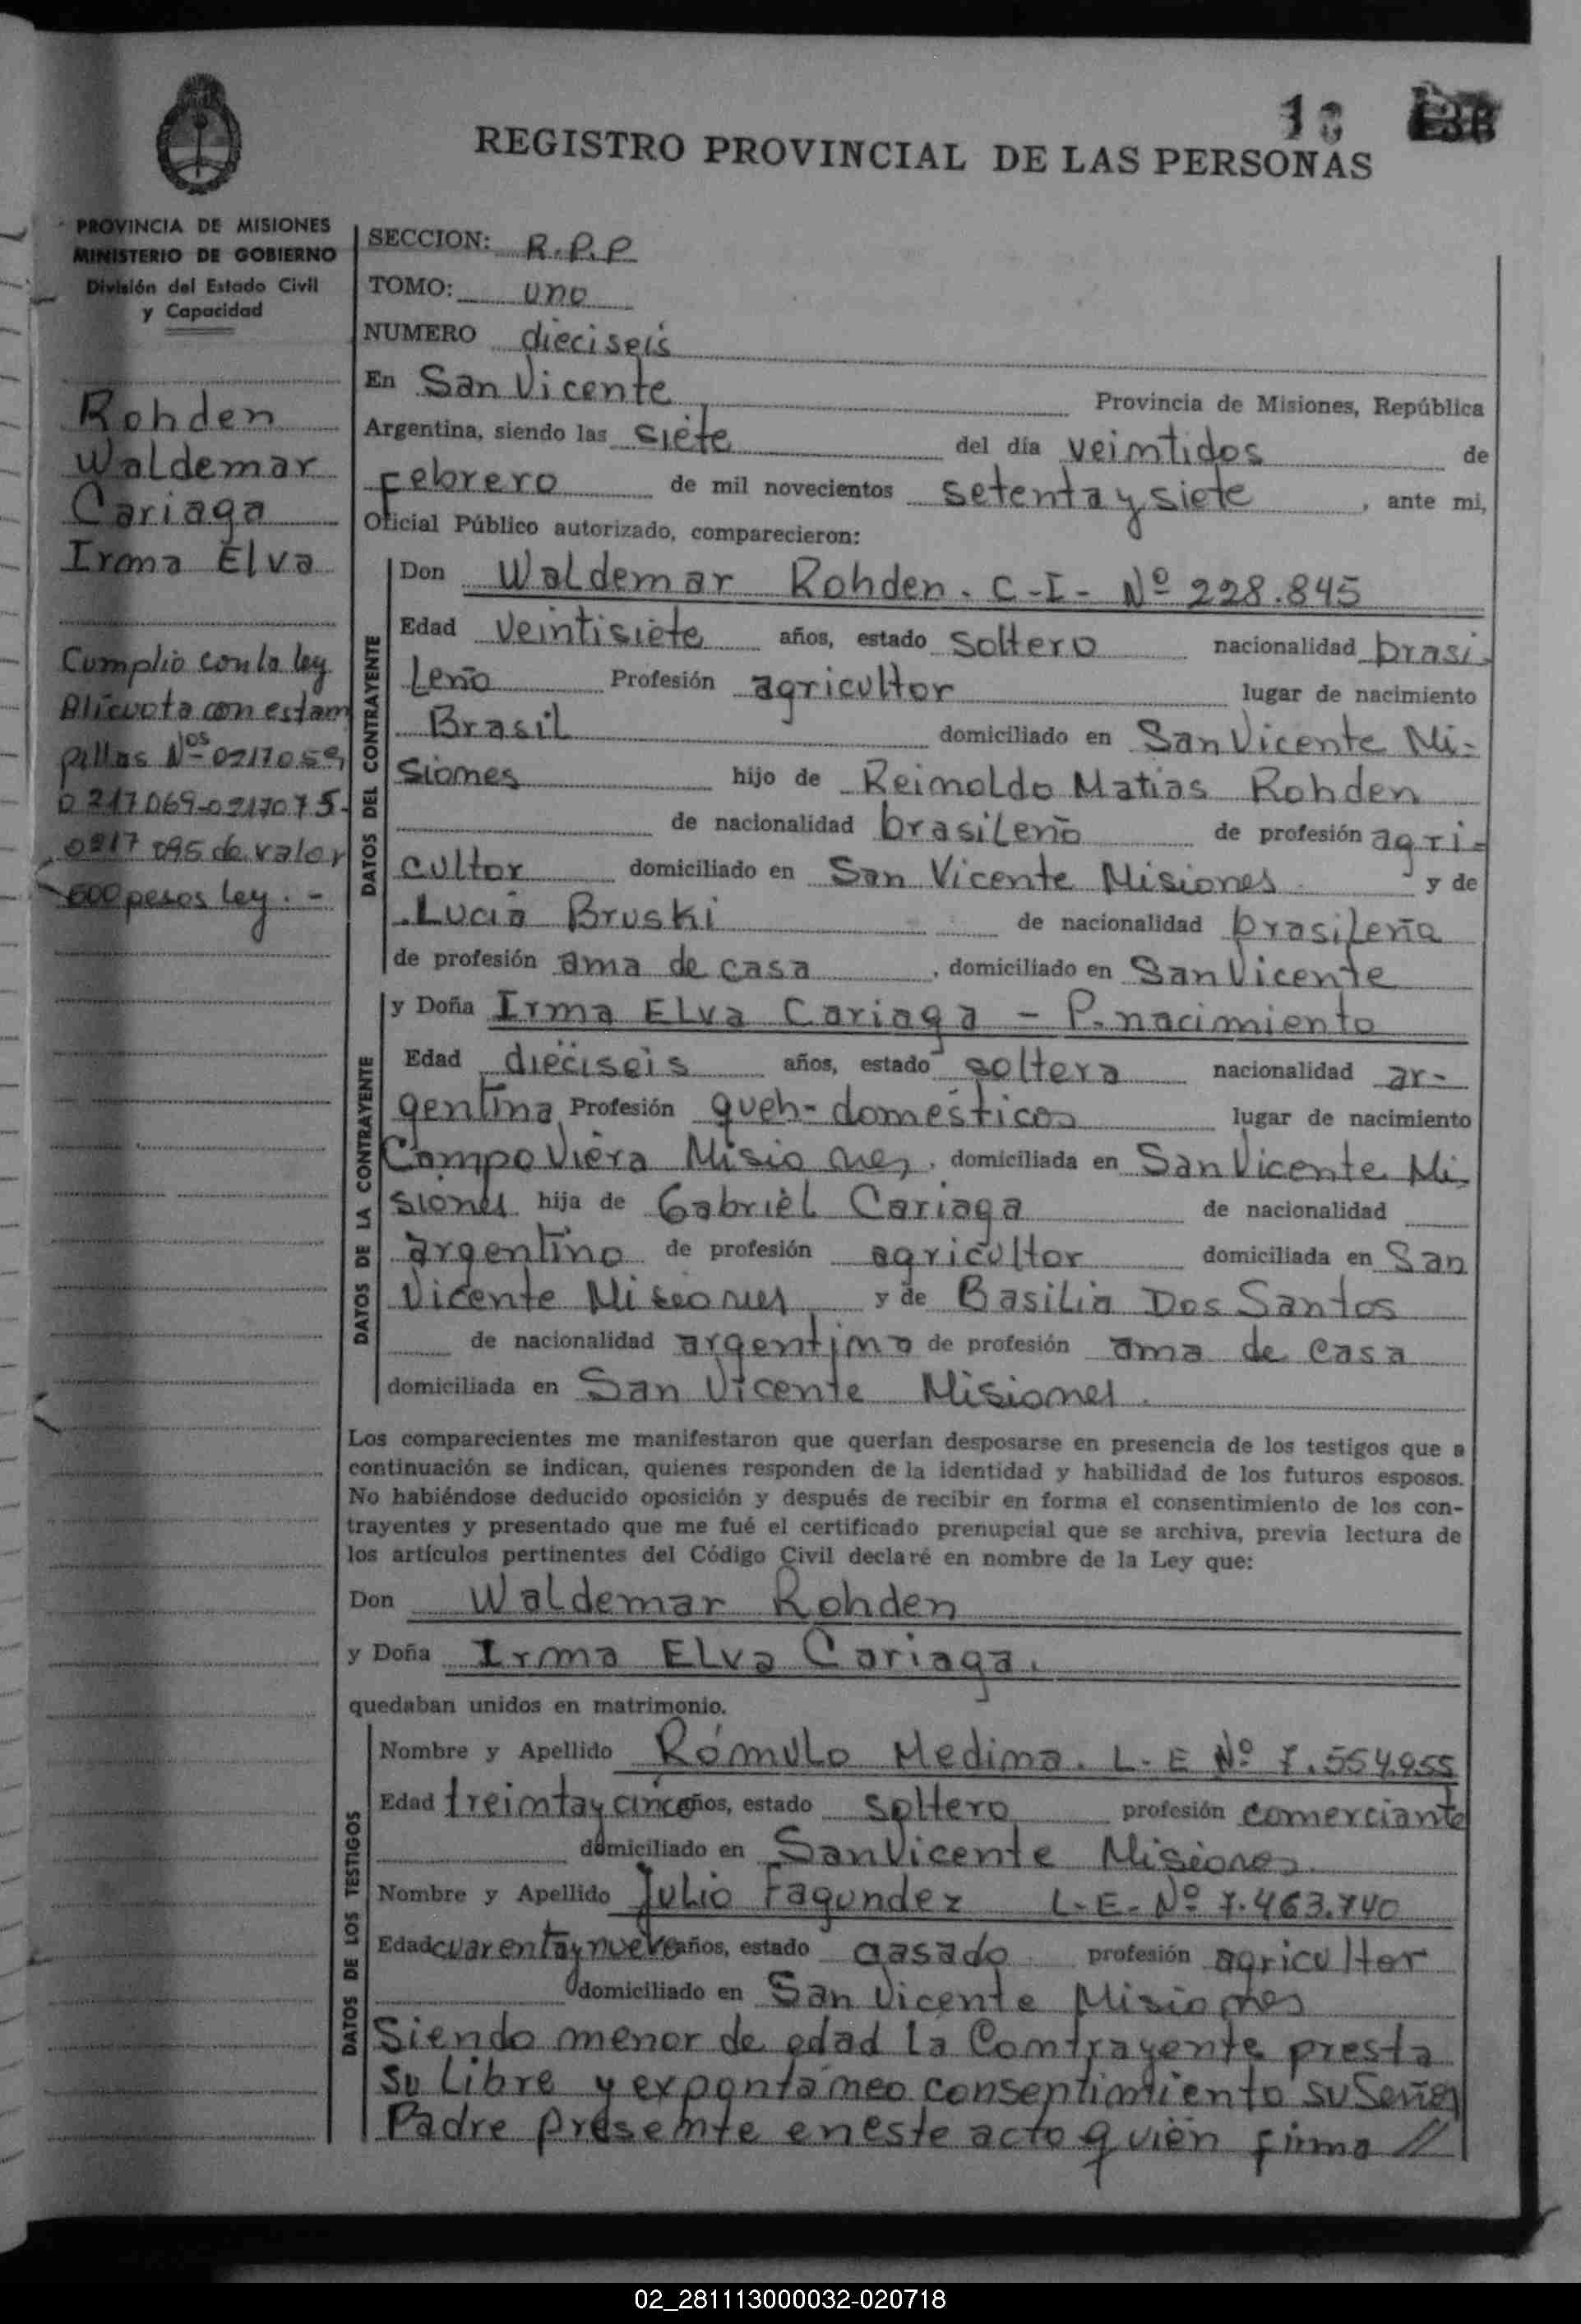 REGISTRO PROVINCIAL DE LAS PERSONAS
PROVINCIA DE MISIONES
MINISTERIO DE GOBIERNO
División del Estado Civil
y Capacidad
Rohden
Waldemar
Cariaga
Irma Elva
Cumplió con la ley
Alicuota con estam
pillas Nos 0217059
0217069-0217075-
0217095 de valor
600 pesos ley. -
SECCION: R.P.P
TOMO: uno
NUMERO dieciseis
En San Vicente Provincia de Misiones, República
Argentina, siendo las siete del día veimtidos de
Febrero de mil novecientos setenta y siete, ante mi,
Oficial Público autorizado, comparecieron:
DATOS DEL CONTRAYENTE
Don Waldemar Rohden. C-I- Nº 228.845
Edad veintisiete años, estado soltero nacionalidad brasi-
leño Profesión agricultor lugar de nacimiento
Brasil domiciliado en San Vicente Mi-
siomes hijo de Reimoldo Matias Rohden
de nacionalidad brasileño de profesión agri-
cultor domiciliado en San Vicente Misiones y de
Lucia Bruski de nacionalidad brasileña
de profesión ama de casa, domiciliado en San Vicente
DATOS DE LA CONTRAYENTE
y Doña Irma Elva Cariaga - P. nacimiento
Edad dieciseis años, estado soltera nacionalidad ar-
gentina Profesión queh-domésticos lugar de nacimiento
Campo Viera Misiones, domiciliada en San Vicente Mi-
siones hija de Gabriel Cariaga de nacionalidad
argentino de profesión agricultor domiciliada en San
Vicente Misiones y de Basilia Dos Santos
de nacionalidad argentima de profesión ama de casa
domiciliada en San Vicente Misiones.
Los comparecientes me manifestaron que querían desposarse en presencia de los testigos que a
continuación se indican, quienes responden de la identidad y habilidad de los futuros esposos.
No habiéndose deducido oposición y después de recibir en forma el consentimiento de los con-
trayentes y presentado que me fué el certificado prenupcial que se archiva, previa lectura de
los artículos pertinentes del Código Civil declaré en nombre de la Ley que:
Don Waldemar Rohden
y Doña Irma Elva Cariaga.
quedaban unidos en matrimonio.
DATOS DE LOS TESTIGOS
Nombre y Apellido Rómulo Medima. L-E Nº 7.554.955
Edad treimta y cinco años, estado soltero profesión comerciante
domiciliado en San Vicente Misiones
Nombre y Apellido Julio Fagundez L-E- Nº 7.463.740
Edad cuarenta y nueve años, estado casado profesión agricultor
domiciliado en San Vicente Misiomes
Siendo menor de edad la Comtrayente presta
su libre y expontámeo consentimiento su Señor
Padre presemte en este acto quién firma //
02_281113000032-020718